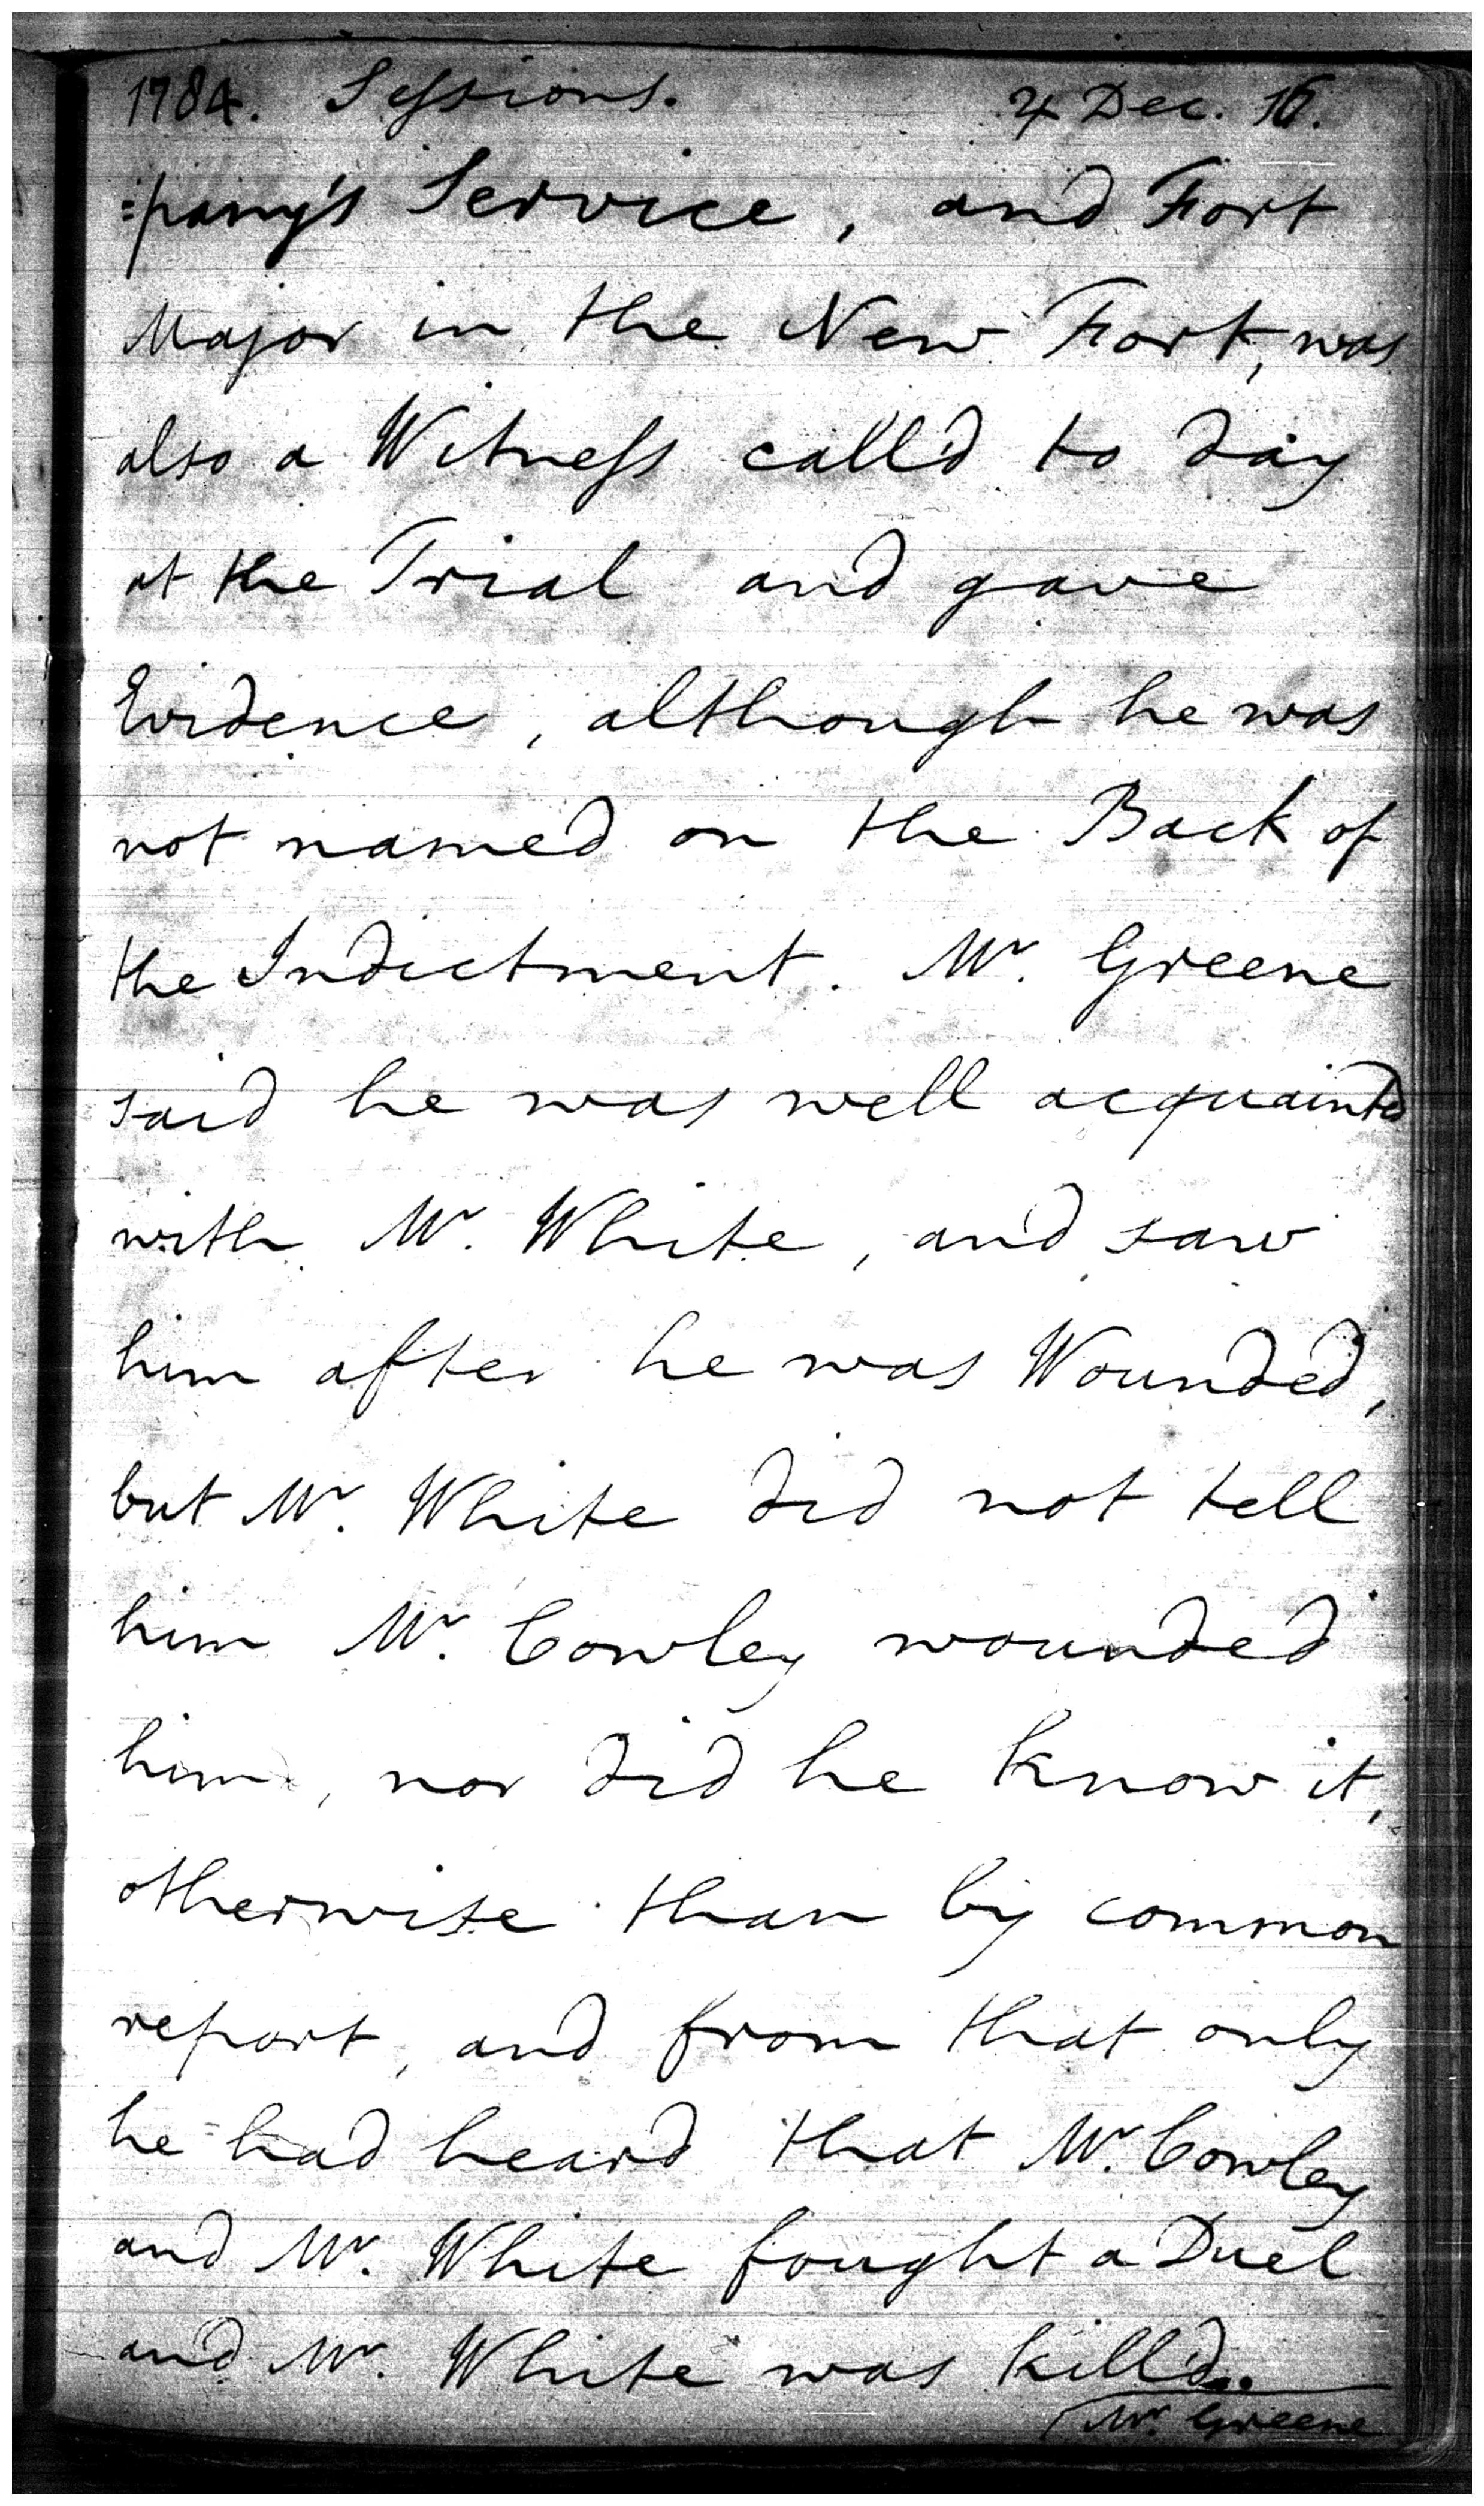 1784. Sessions. ♃ Dec. 16.
=pany's Service, and Fort
Major in the New Fort, was
also a Witness call'd to day
at the Trial and gave
Evidence, although he was
not named on the Back of
the Indictment. Mr. Greene
said he was well acquainted
with Mr. White, and saw
him after he was Wounded,
but Mr. White did not tell
him Mr. Cowley wounded
him, nor did he know it,
otherwise than by common
report, and from that only
he had heard that Mr. Cowley
and Mr. White fought a Duel
and Mr. White was kill'd.
Mr. Greene